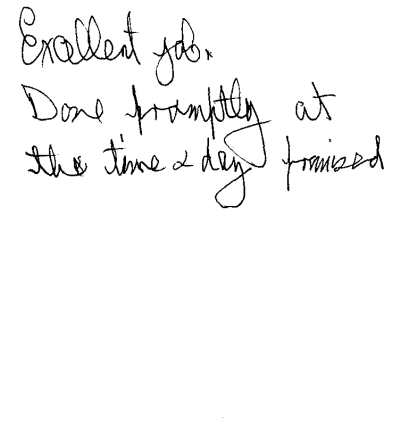 Excellent job.
Done promptly at
the time & day promised